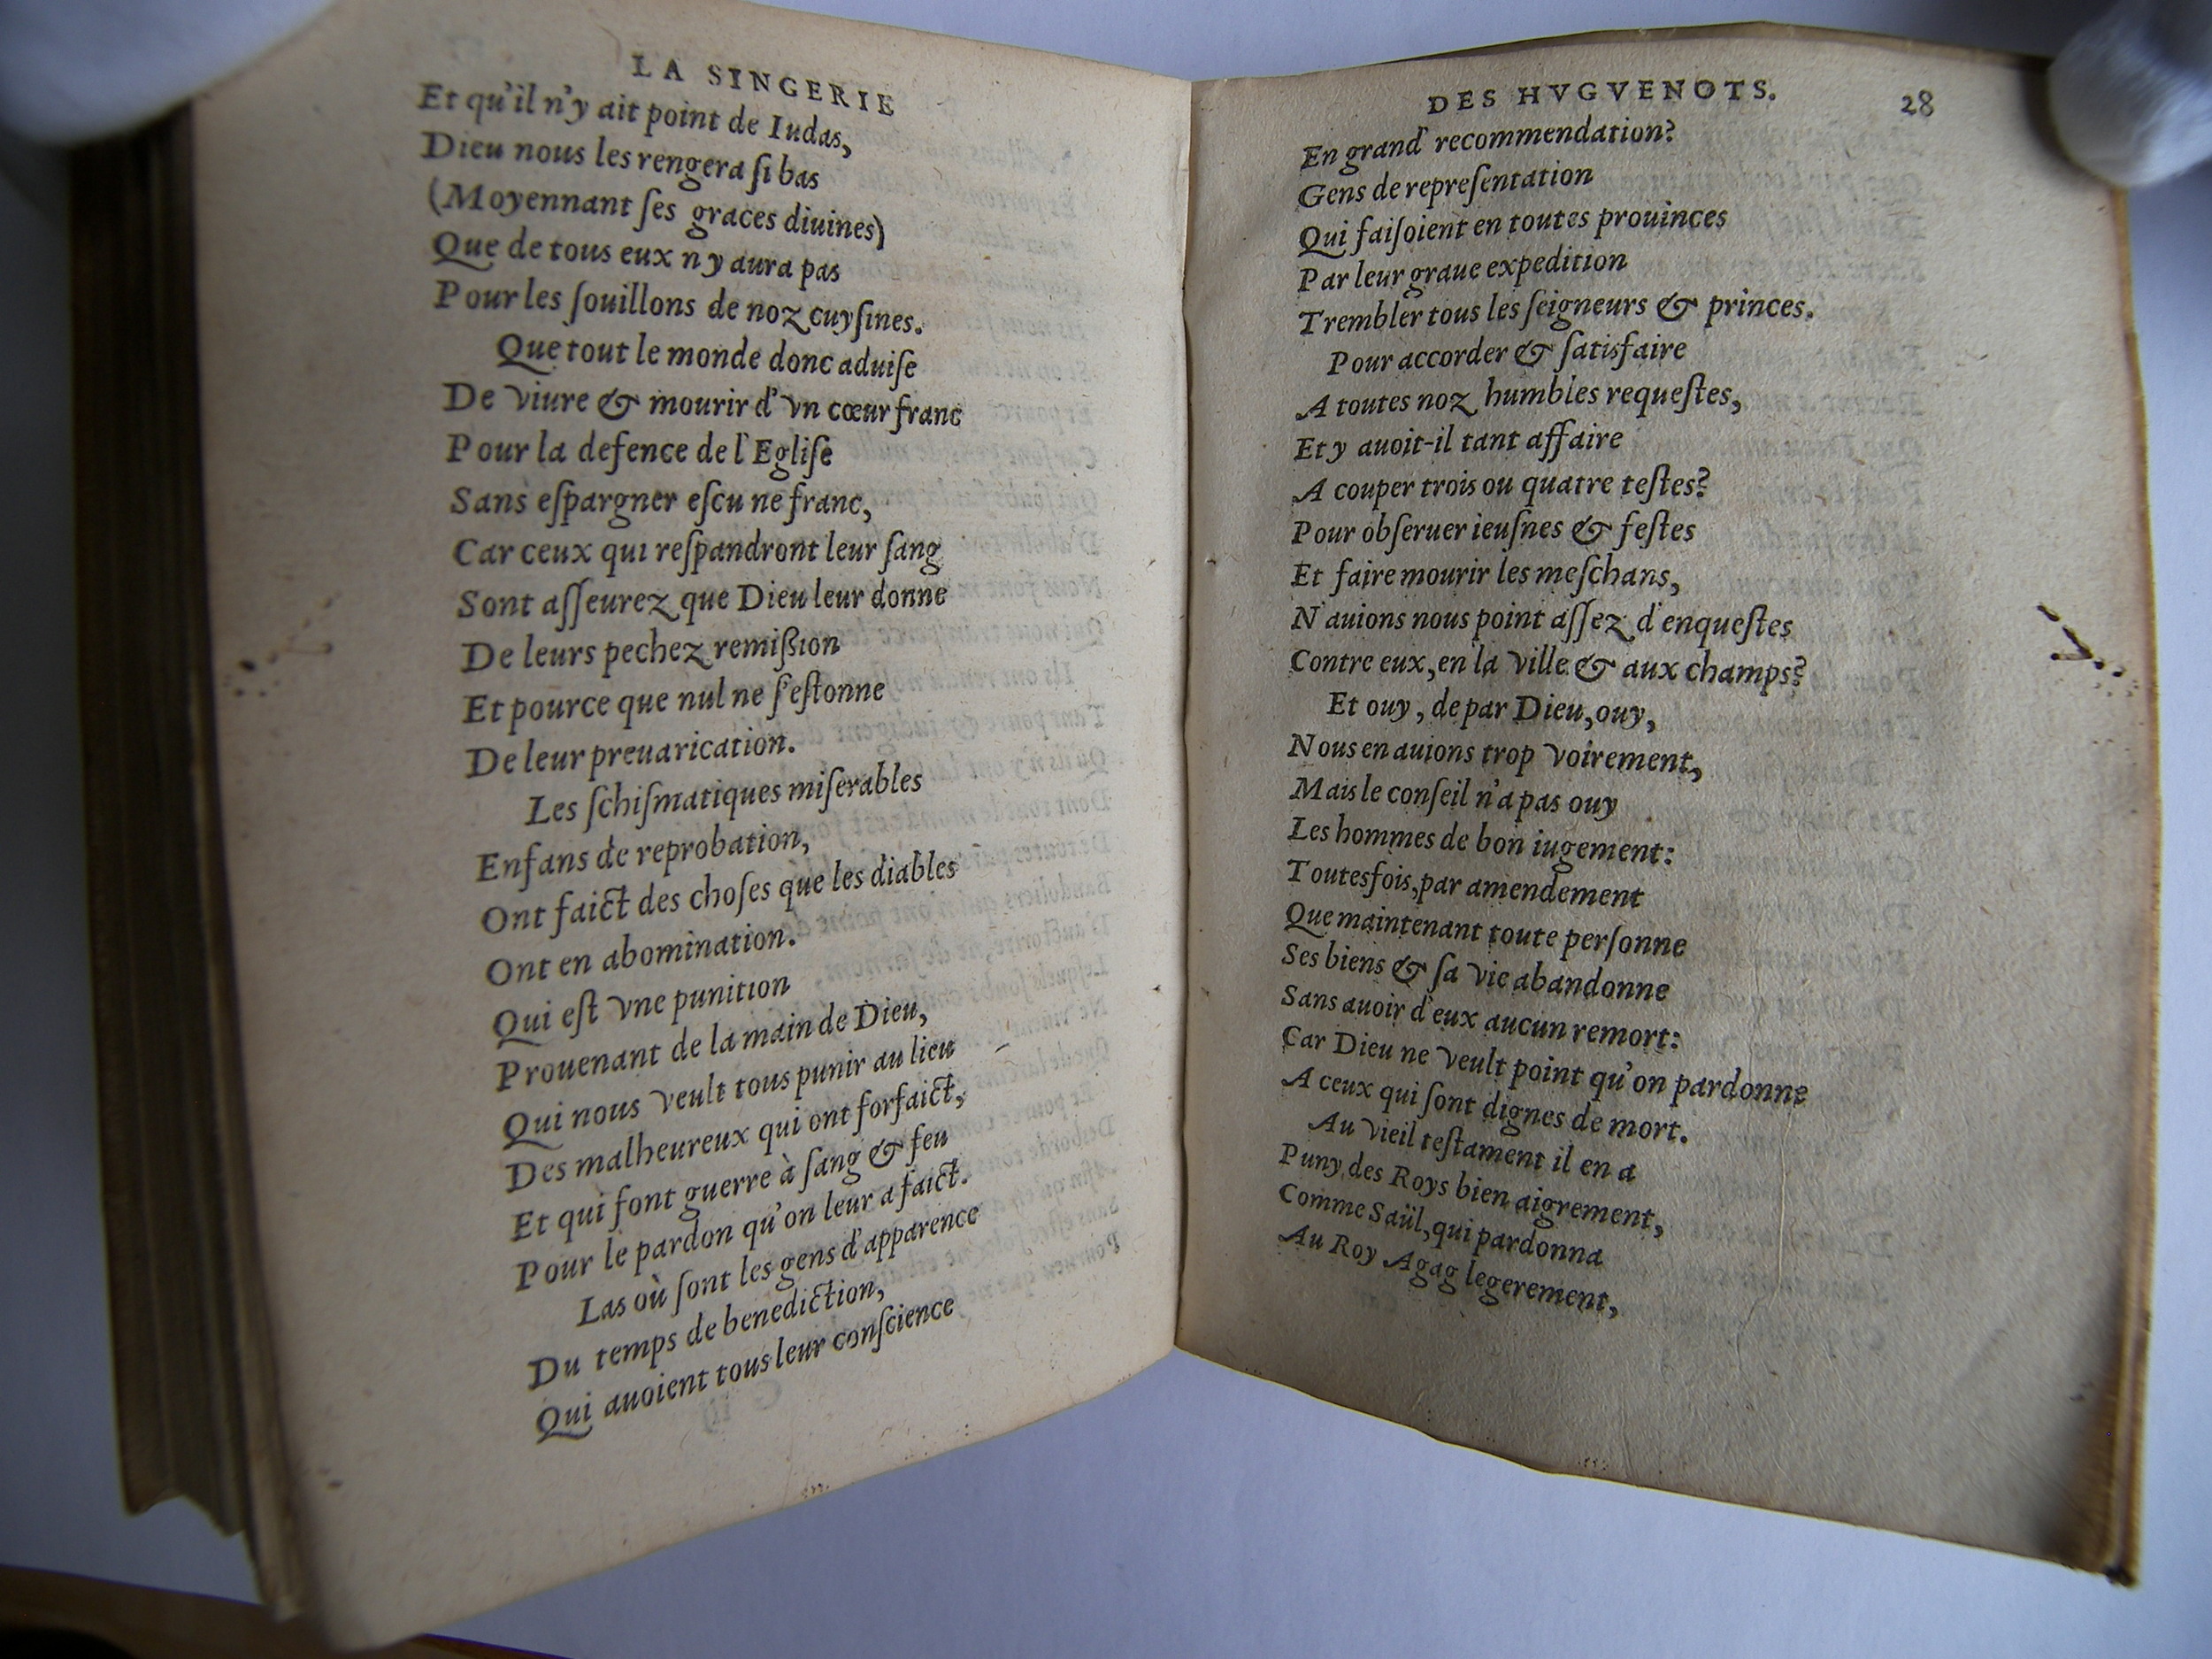 LA SINGERIE
Et qu'il n'y ait point de Iudas,
Dieu nous les rengera ſi bas
(Moyennant ſes graces diuines)
Que de tous eux n'y aura pas
Pour les ſouillons de noz cuyſines.
Que tout le monde donc aduiſe
De viure & mourir d'vn cœur franc
Pour la defence de l'Egliſe
Sans eſpargner eſcu ne franc,
Car ceux qui reſpandront leur ſang
Sont aſſeurez que Dieu leur donne
De leurs pechez remißion
Et pource que nul ne ſ'eſtonne
De leur preuarication.
Les ſchiſmatiques miſerables
Enfans de reprobation,
Ont faict des choſes que les diables
Ont en abomination.
Qui eſt vne punition
Prouenant de la main de Dieu,
Qui nous veult tous punir au lieu
Des malheureux qui ont forfaict,
Et qui font guerre à ſang & feu
Pour le pardon qu'on leur a faict.
Las où ſont les gens d'apparence
Du temps de benediction,
Qui auoient tous leur conſcience
DES HVGVENOTS. 28
En grand' recommendation?
Gens de repreſentation
Qui faiſoient en toutes prouinces
Par leur graue expedition
Trembler tous les ſeigneurs & princes.
Pour accorder & ſatisfaire
A toutes noz humbles requeſtes,
Et y auoit-il tant affaire
A couper trois ou quatre teſtes?
Pour obſeruer ieuſnes & feſtes
Et faire mourir les meſchans,
N'auions nous point aſſez d'enqueſtes
Contre eux, en la ville & aux champs?
Et ouy, de par Dieu, ouy,
Nous en auions trop voirement,
Mais le conſeil n'a pas ouy
Les hommes de bon iugement:
Toutesfois, par amendement
Que maintenant toute perſonne
Ses biens & ſa vie abandonne
Sans auoir d'eux aucun remort:
Car Dieu ne veult point qu'on pardonne
A ceux qui ſont dignes de mort.
Au vieil teſtament il en a
Puny des Roys bien aigrement,
Comme Saül, qui pardonna
Au Roy Agag legerement,